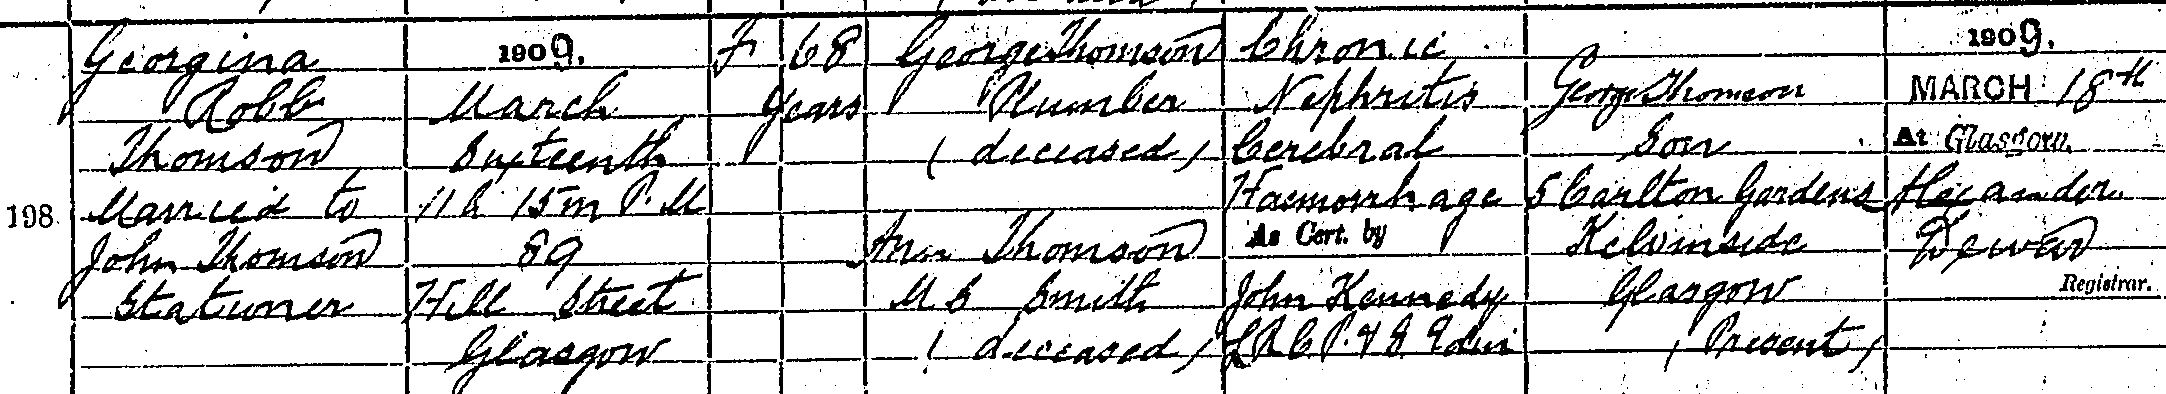 198
Georgina
Robb
Thomson
Married to
John Thomson
Stationer
1909.
March
Sixteenth
11 h 15 m P. M
89
Hill Street
Glasgow
F
68
years
George Thomson
Plumber
(deceased)
Ann Thomson
M S Smith
(deceased)
Chronic
Nephritis
Cerebral
Haemorrhage
As Cert. by
John Kennedy
L R C P. & S Edin
George Thomson
Son
5 Carlton Gardens
Kelvinside
Glasgow
(Present)
1909.
MARCH 18th
At Glasgow.
Alexander
Dewar
Registrar.